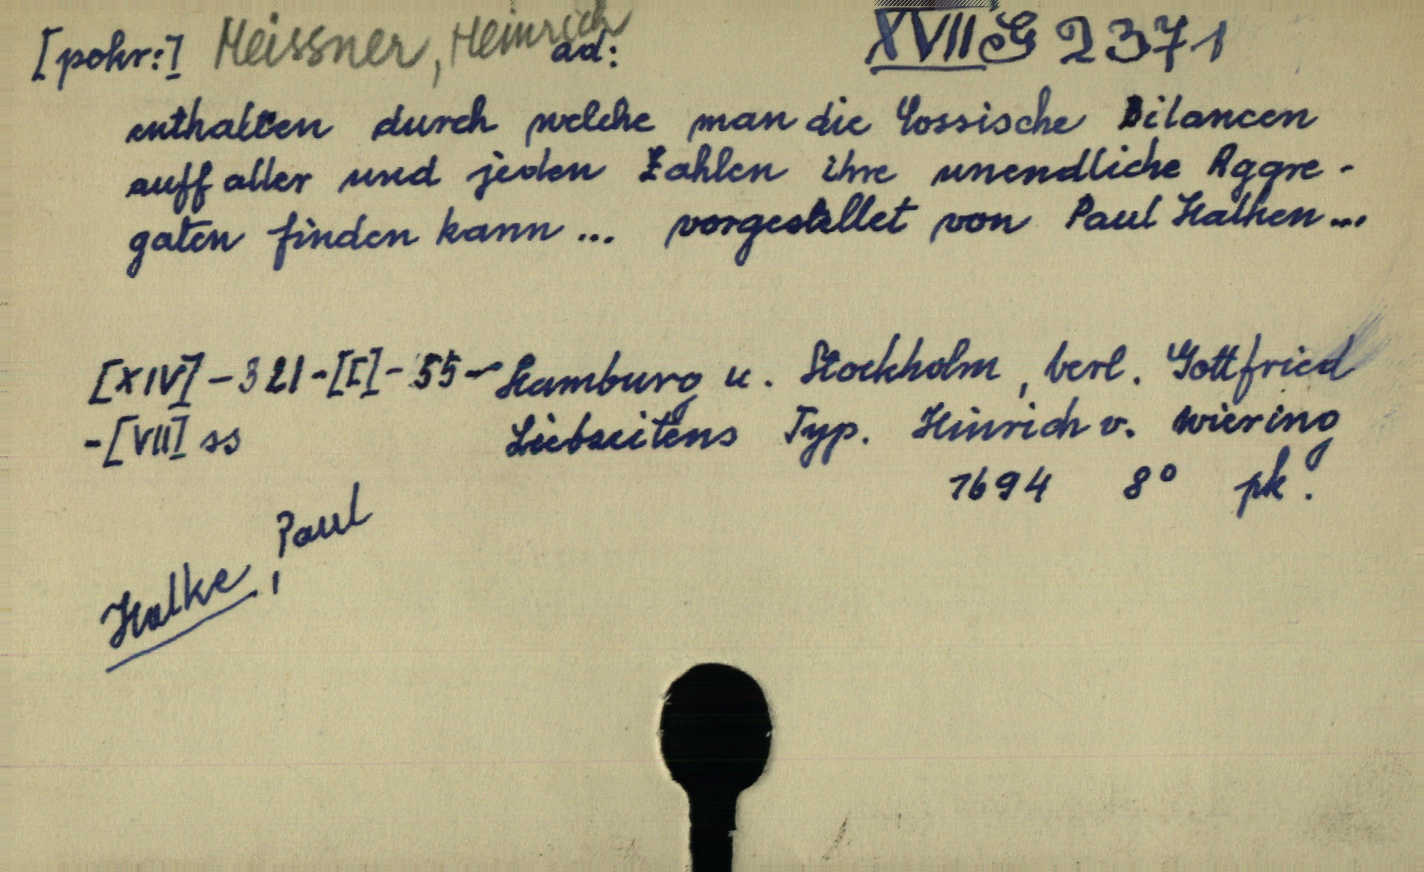 [pokr:] Meissner, Heinrich ad: XVII G 2371
enthalten durch welche man die Cossische Bilancen
auff aller und jeden Zahlen ihre unendliche Aggre-
gaten finden kann ... vorgestellet von Paul Halken ...
[XIV] - 321 - [I] - 55 - Hamburg u. Stockholm, verl. Gottfried
- [VII] ss Liebzeitens Typ. Hinrich v. Wiering
1694 8° pk.
Halke, Paul